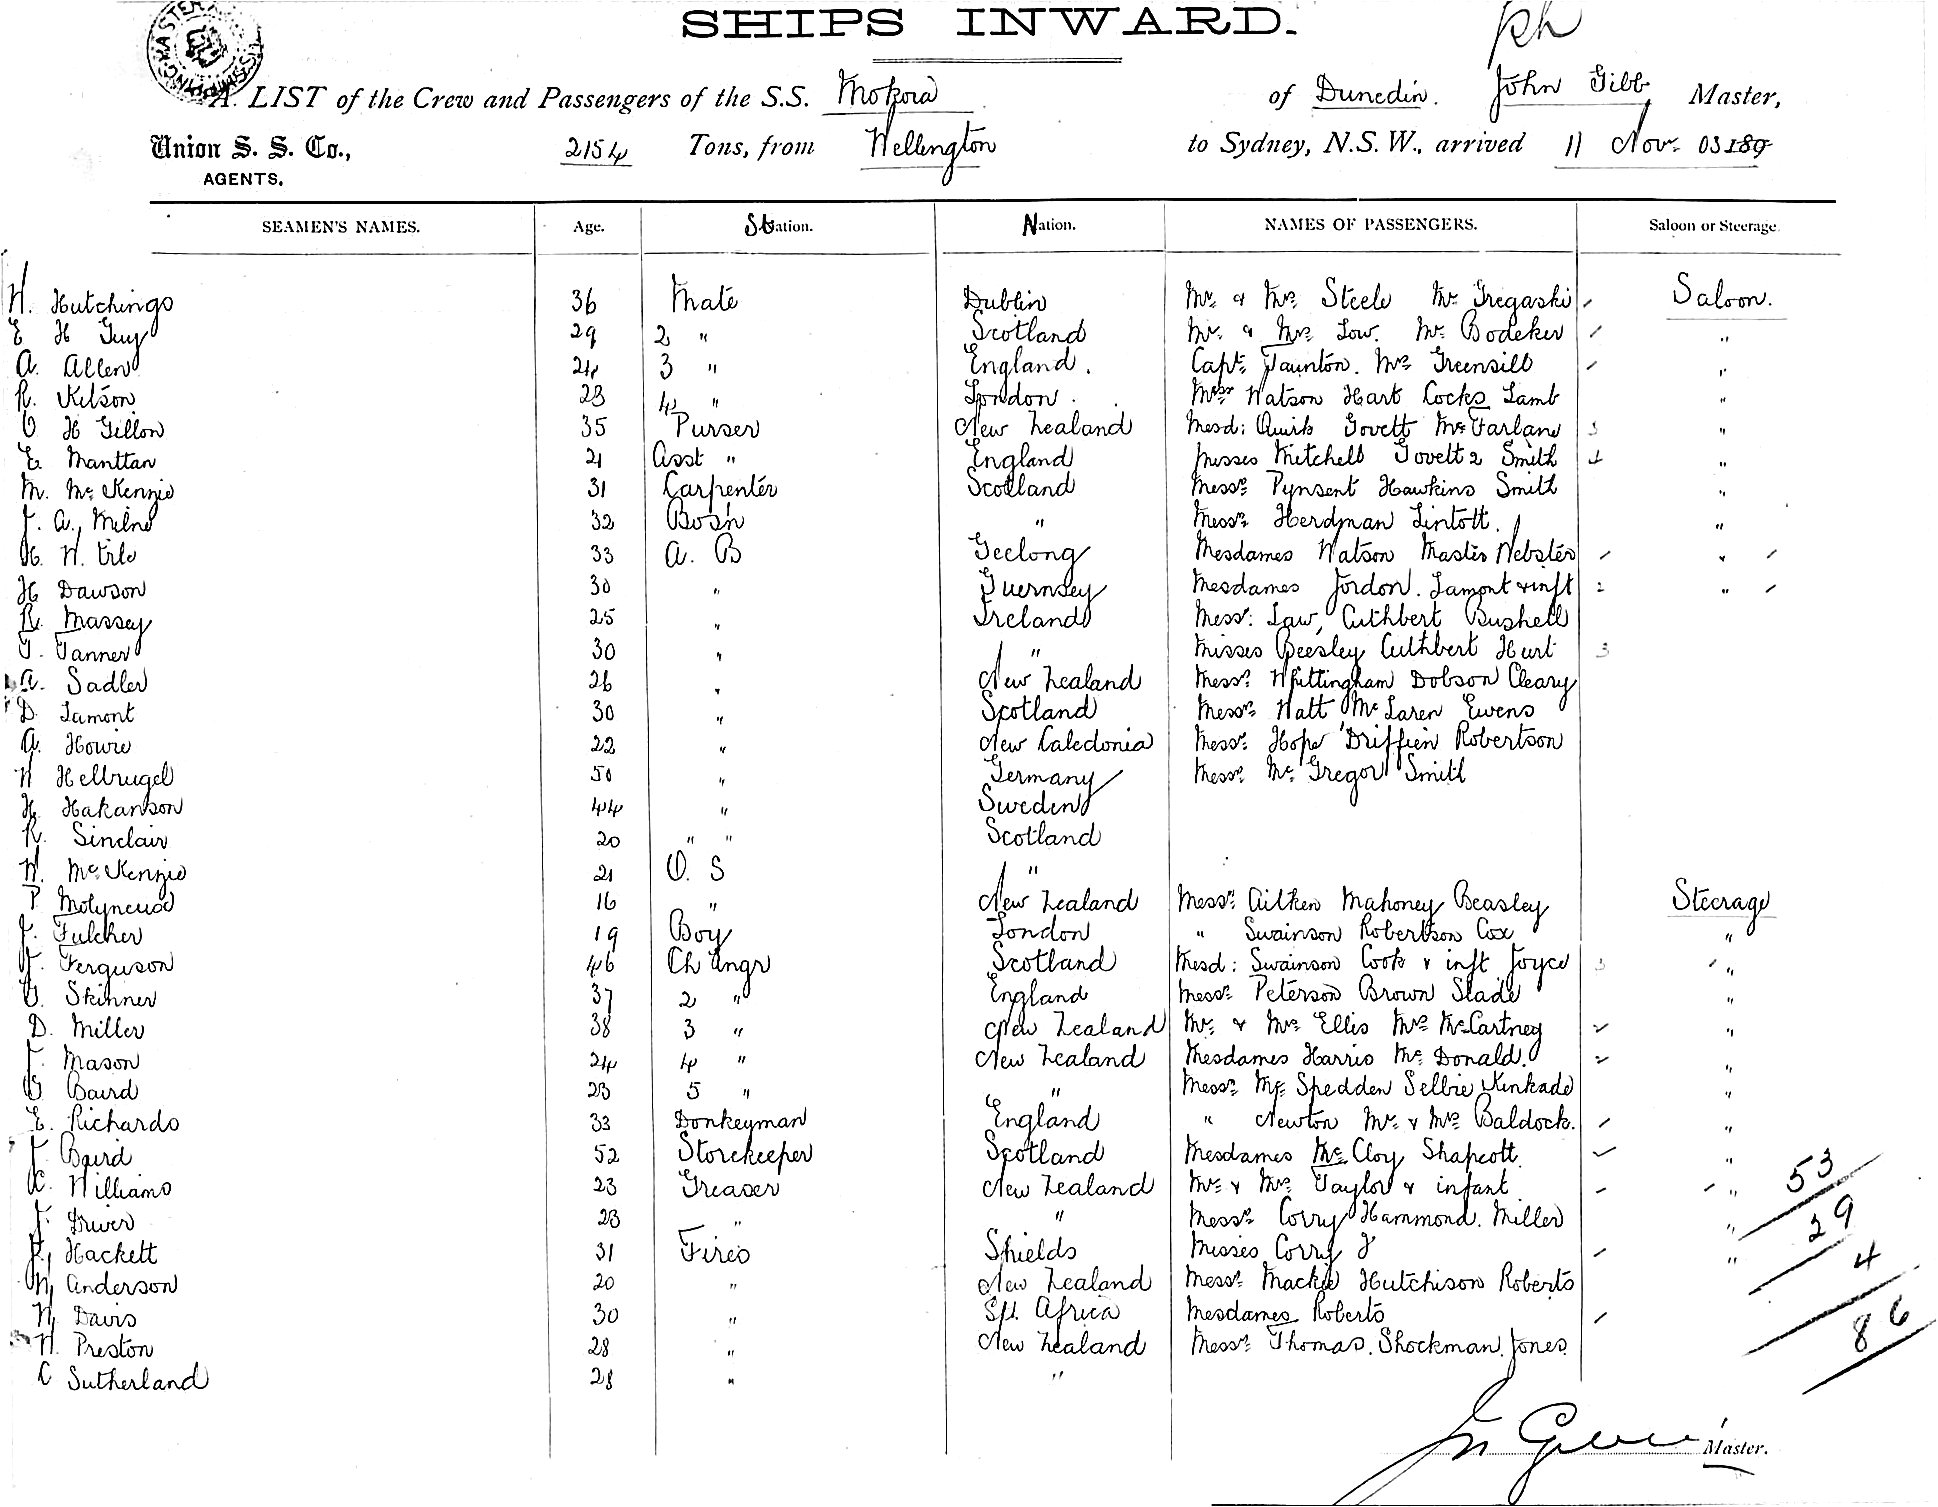 SHIPS INWARD.
A. LIST of the Crew and Passengers of the S.S. Mokoia of Dunedin. John Gibb Master,
Union S. S. Co., 2154 Tons, from Wellington to Sydney, N.S.W., arrived 11 Nov. 03 189
AGENTS.
SEAMEN'S NAMES. Age. Station. Nation. NAMES OF PASSENGERS. Saloon or Steerage.
W. Hutchings 36 Mate Dublin Mr. & Mrs. Steele Mr Tregaski Saloon.
E H Guy 29 2 " Scotland Mr. & Mrs Low. Mr. Bodeker "
A. Allen 24 3 " England. Capt. Taunton. Mrs Greensill "
R. Kitson 23 4 " London. Messrs Watson Hart Cocks Lamb "
O H Gillon 35 Purser New Zealand Mesd: Quirk Govett McFarlane 3 "
E. Manttan 21 Asst " England Misses Mitchell Govett 2 Smith 4 "
M. McKenzie 31 Carpenter Scotland Messrs Pynsent Hawkins Smith "
J. A. Milne 32 Bos'n " Messrs Herdman Lintott. "
H. W. 33 A. B Geelong Mesdames Watson Master Webster "
H Dawson 30 " Guernsey Mesdames Jordon. Lamont & inft 2 "
R. Massey 25 " Ireland Messrs: Law, Cuthbert Bushell
T. Tanner 30 " " Misses Beesley Cuthbert Hurt 3
A. Sadler 26 " New Zealand Messrs Whittingham Dobson Cleary
D. Lamont 30 " Scotland Messrs Watt McLaren Ewens
A. Howie 22 " New Caledonia Messrs Hope Driffien Robertson
W Helbrugel 50 " Germany Messrs McGregor Smith
H. Hakanson 44 " Sweden
R. Sinclair 20 " " Scotland
W. McKenzie 21 O. S "
P Molyneux 16 " New Zealand Messrs Aitken Mahoney Beasley Steerage
J. Fulcher 19 Boy London " Swainson Robertson Cox "
J. Ferguson 46 Ch Engr Scotland Mesd: Swainson Cook & inft Joyce 3 "
G. Skinner 37 2 " England Messrs Peterson Brown Slade "
D. Miller 38 3 " New Zealand Mr. & Mrs Ellis Mrs McCartney "
J. Mason 24 4 " New Zealand Mesdames Harris McDonald. "
G. Baird 23 5 " " Messrs McSpedden Selbie Kinkade "
E. Richards 33 Donkeyman England " Newton Mr. & Mrs Baldock. "
J. Baird 52 Storekeeper Scotland Mesdames McCloy Shapcott. "
C. Williams 23 Greaser New Zealand Mr. & Mrs. Taylor & infant " 53
J. Driver 23 " " Messrs Corry Hammond. Miller " 29
P. Hackett 31 Fires Shields Misses Corry J " 4
W. Anderson 20 " New Zealand Messrs Mackie Hutchison Roberts
W. Davis 30 " Sth Africa Mesdames Roberts 86
W. Preston 28 " New Zealand Messrs Thomas. Shockman. Jones.
C Sutherland 28 " "
Jn Gibb Master.